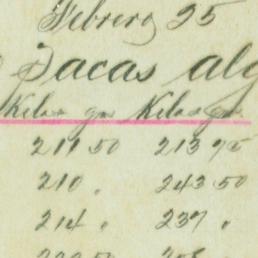 Febrero 25
Sacas alg
Kilos gs Kilos gs
211 50 213 75
210 " 243 50
214 " 237 "